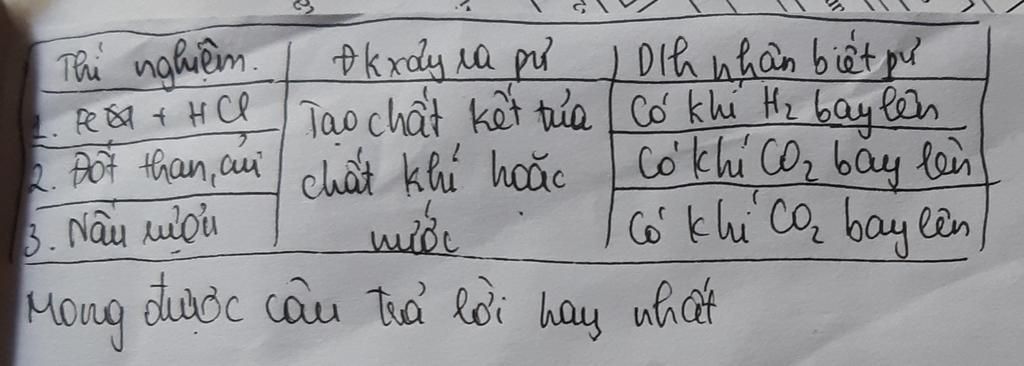 Thí nghiệm. Đk xảy ra pứ D/h nhận biết pứ
1. Fe + HCl Tạo chất kết tủa Có khí H2 bay lên
2. Đốt than, củi chất khí hoặc Có khí CO2 bay lên
3. Nấu rượu nước Có khí CO2 bay lên
Mong được câu trả lời hay nhất